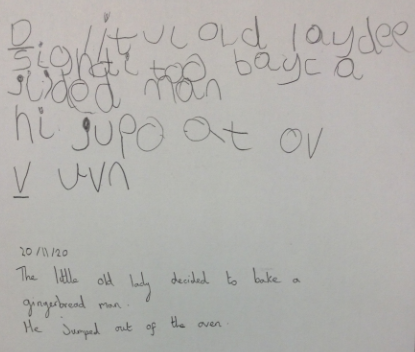 D litul old laydee
too bayc a
man
hi jupd at ov
V uvn
20/11/20
The little old lady decided to bake a
gingerbread man.
He jumped out of the oven.